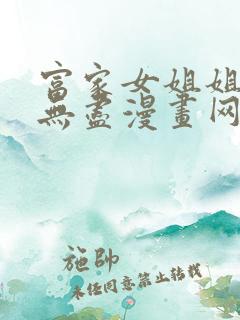 富家女姐姐
無盡漫畫网
施帥
未经同意禁止转载